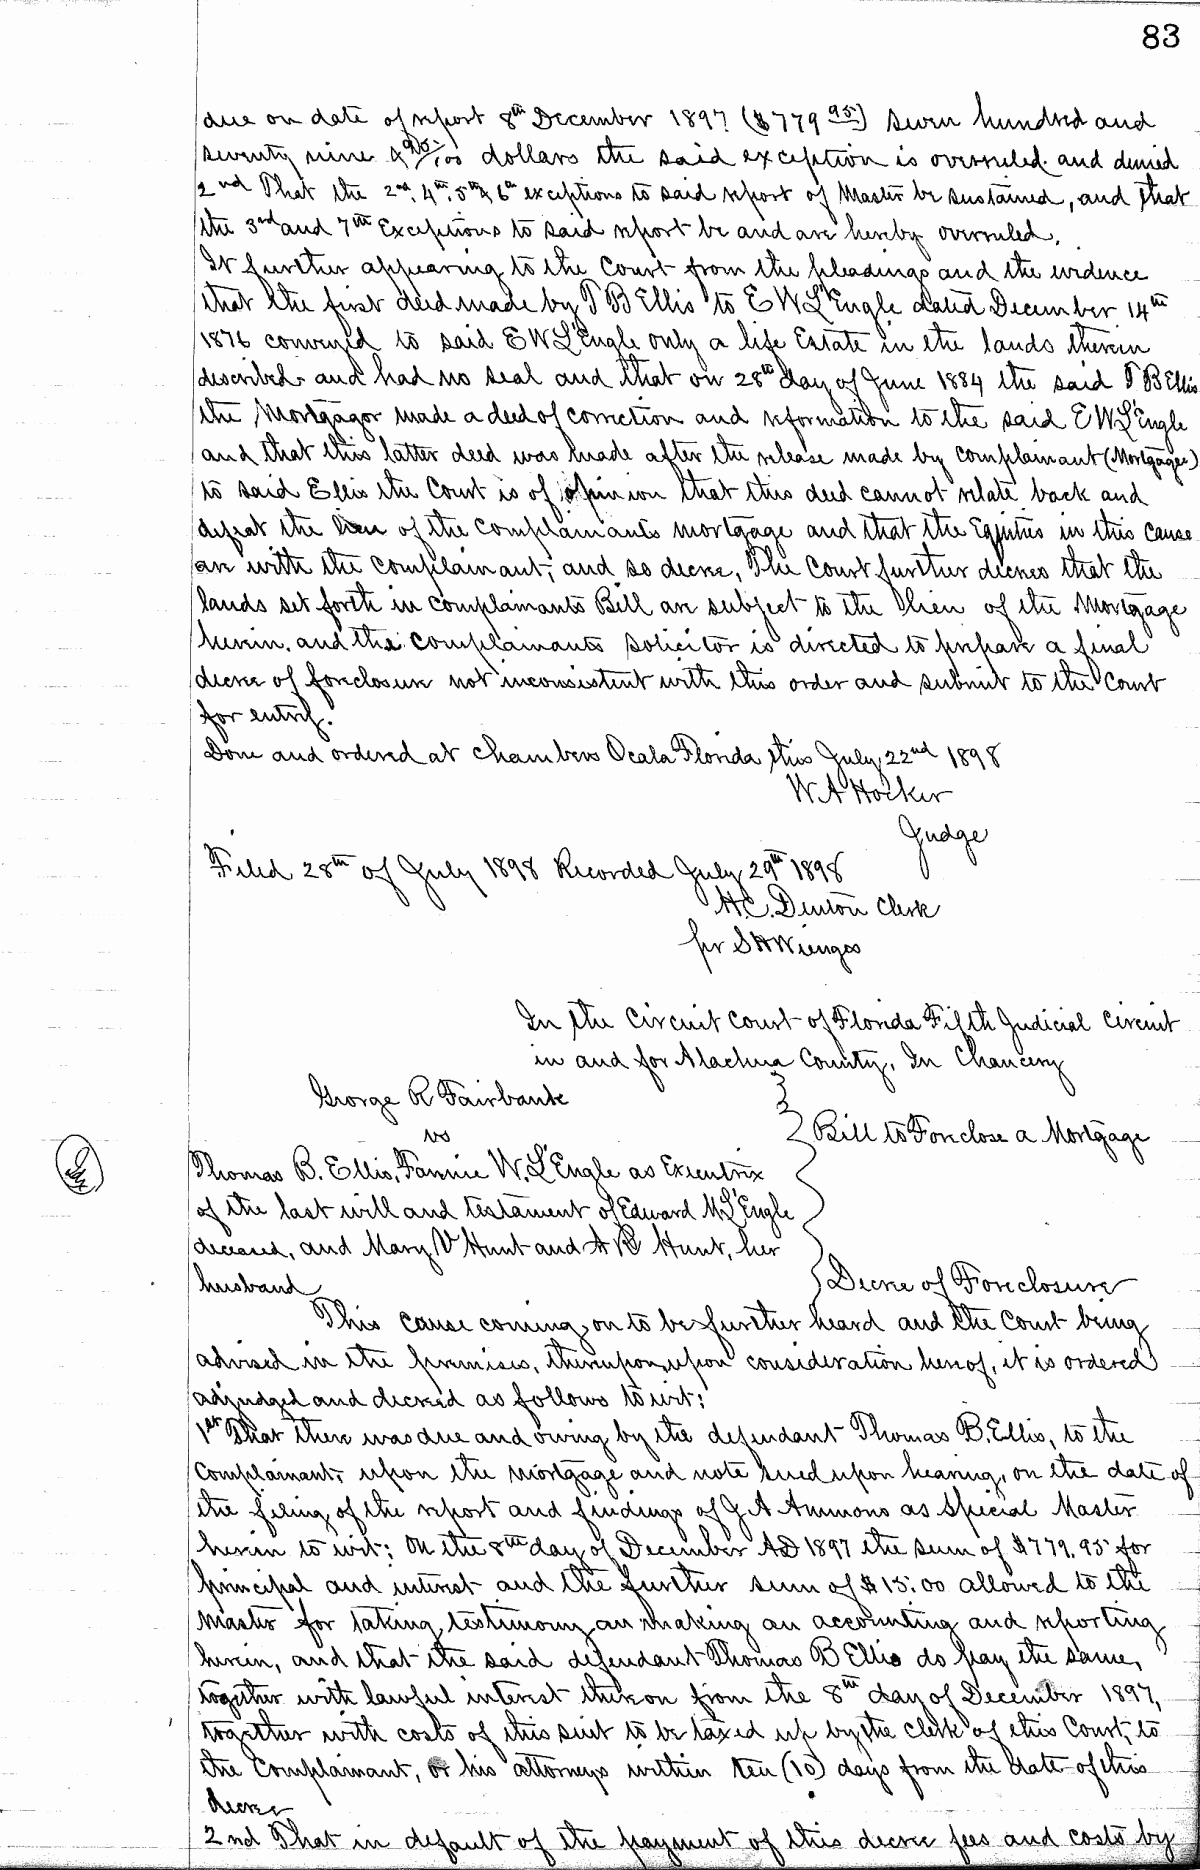 83
due on date of report 8th December 1897 ($779 95) seven hundred and
seventy nine & 95/100 dollars the said exception is overruled and denied
2nd That the 2nd, 4th, 5th & 6th exceptions to said report of Master be sustained, and that
the 3rd and 7th Exceptions to said report be and are hereby overruled.
It further appearing to the Court from the pleadings and the evidence
that the first deed made by T B Ellis to E W L'Engle dated December 14th
1876 conveyed to said E W L'Engle only a life Estate in the lands therein
described and had no seal and that on 28th day of June 1884 the said T B Ellis
the Mortgagor made a deed of correction and reformation to the said E W L'Engle
and that this latter deed was made after the release made by complainant (Mortgagee)
to said Ellis the Court is of opinion that this deed cannot relate back and
defeat the lien of the complainants mortgage and that the Equities in this cause
are with the complainant; and so decree, The Court further decrees that the
lands set forth in complainants Bill are subject to the lien of the Mortgage
herein. and the complainants solicitor is directed to prepare a final
decree of foreclosure not inconsistent with this order and submit to the Court
for entry.
Done and ordered at chambers Ocala Florida this July 22nd 1898
W A Hocker
Judge
Filed 28th of July 1898 Recorded July 29th 1898
H.C. Denton Clerk
per S H Wienges
In the Circuit Court of Florida Fifth Judicial Circuit
in and for Alachua County. In Chancery
George R Fairbank
vs
Bill to Foreclose a Mortgage
Thomas B. Ellis, Fannie W. L'Engle as Executrix
of the last will and testament of Edward M L'Engle
deceased, and Mary V Hunt and A R Hunt, her
husband
Decree of Foreclosure
This cause coming on to be further heard and the Court being
advised in the premises, thereupon, upon consideration hereof, it is ordered
adjudged and decreed as follows to wit:
1st That there was due and owing by the defendant Thomas B. Ellis, to the
Complainant, upon the mortgage and note sued upon hearing, on the date of
the filing of the report and findings of G A Ammons as Special Master
herein to wit; On the 8th day of December AD 1897 the sum of $779.95 for
principal and interest and the further sum of $15.00 allowed to the
Master for taking testimony an making an accounting and reporting
herein, and that the said defendant Thomas B Ellis do pay the same,
together with lawful interest thereon from the 8th day of December 1897,
together with costs of this suit to be taxed up by the Clerk of this Court, to
the Complainant, or his attorneys within ten (10) days from the date of this
decree
2nd That in default of the payment of this decree fees and costs by